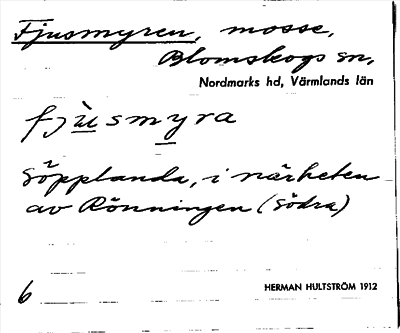 Fjusmyren, mosse,
Blomskogs sn,
Nordmarks hd, Värmlands län
fjùsmyra
Söpplanda, i närheten
av Rönningen (södra)
6 HERMAN HULTSTRÖM 1912